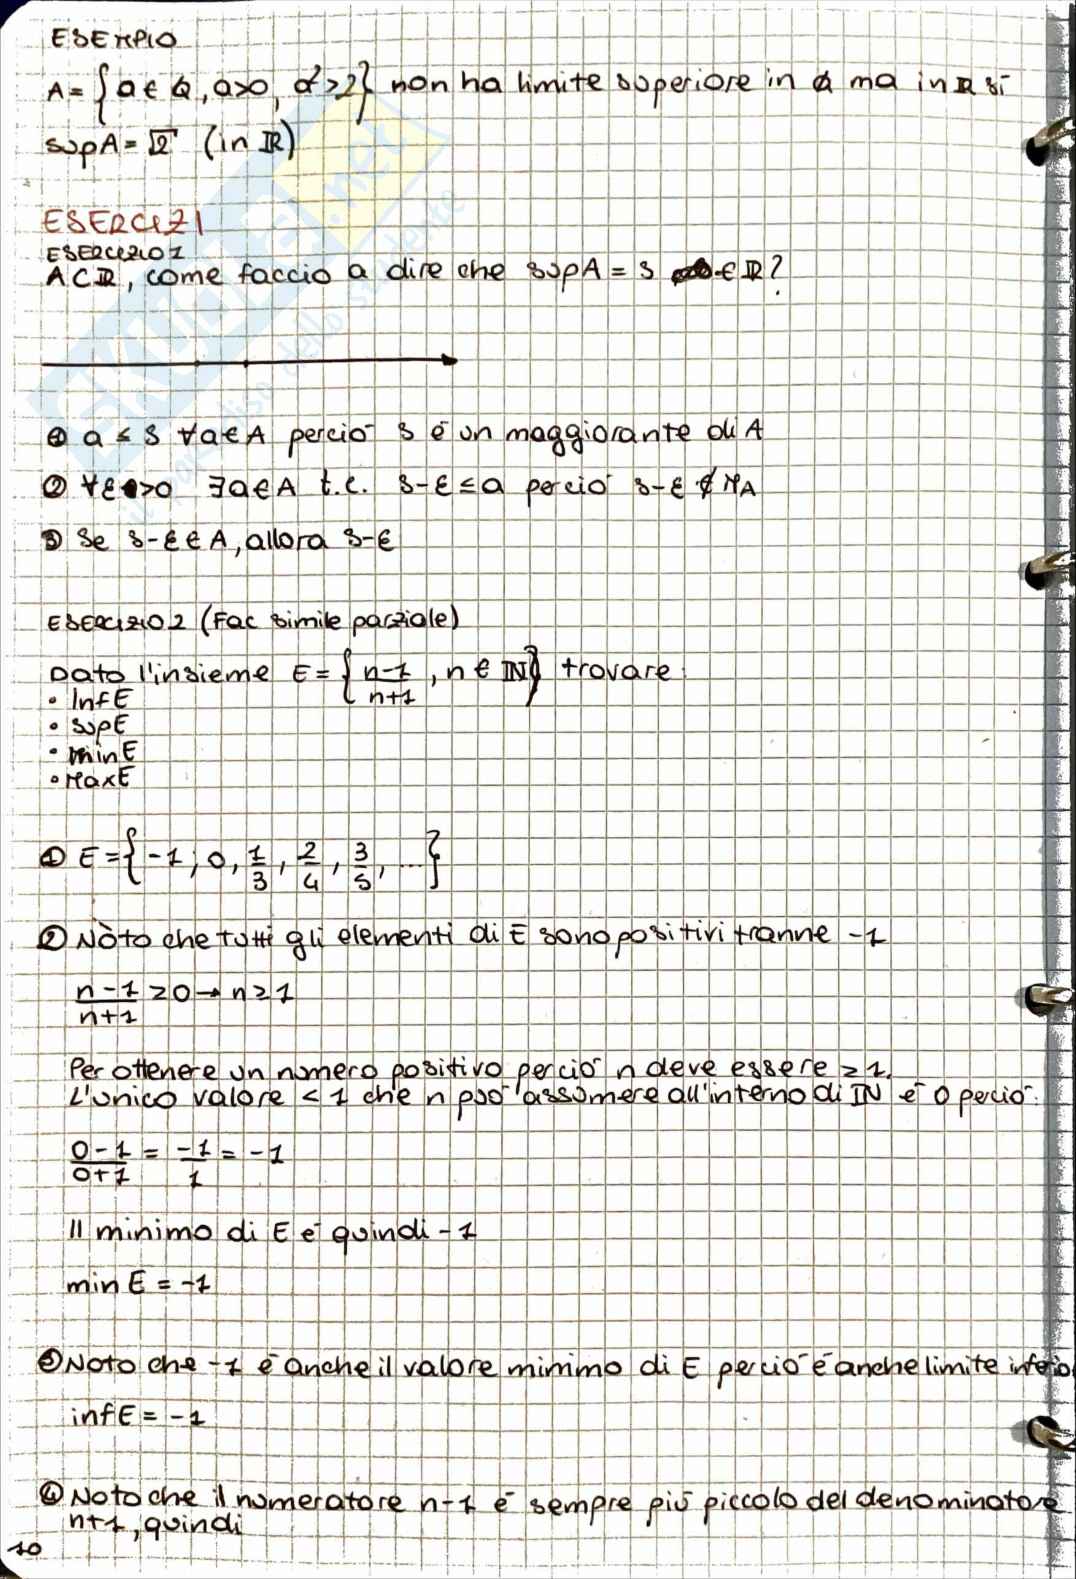 ESEMPIO
A = { a ∈ Q, a>0, a²>2} non ha limite superiore in Q ma in ℝ sì
supA = √2 (in ℝ)
ESERCIZI
ESERCIZIO 1
A⊂ℝ, come faccio a dire che supA = s ∈ ℝ?
① a ≤ s ∀a∈A perciò s è un maggiorante di A
② ∀ε>0 ∃a∈A t.c. s-ε≤a perciò s-ε ∉ MA
③ Se s-ε∈A, allora s-ε
ESERCIZIO 2 (Fac simile parziale)
Dato l'insieme E = { n-1/n+1 , n ∈ ℕ} trovare:
• InfE
• supE
• minE
• MaxE
① E = { -1; 0, 1/3, 2/4, 3/5, ...}
② Nòto che tutti gli elementi di E sono positivi tranne -1
n-1/n+1 ≥0 → n≥1
Per ottenere un numero positivo perciò n deve essere ≥1.
L'unico valore <1 che n può assumere all'interno di ℕ è 0 perciò:
0-1/0+1 = -1/1 = -1
Il minimo di E è quindi -1
min E = -1
③ Noto che -1 è anche il valore minimo di E perciò è anche limite inferio
infE = -1
④ Noto che il numeratore n-1 è sempre più piccolo del denominatore
n+1, quindi
10
SKUOLA.net
il paradiso dello studente